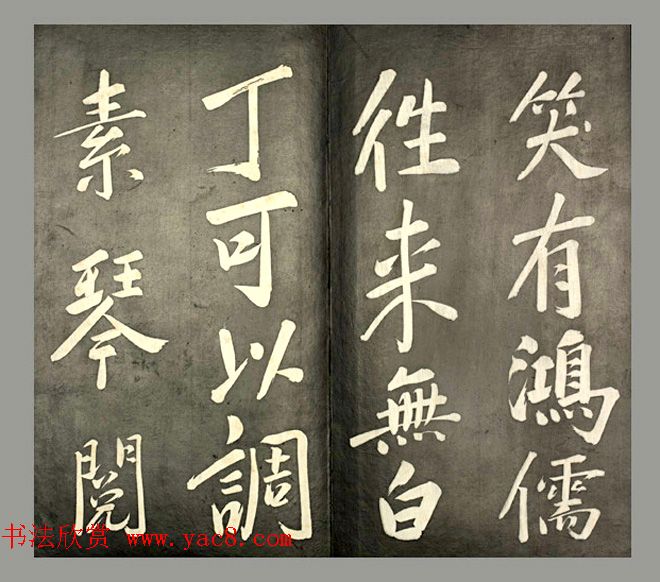 笑有鴻儒
往来無白
丁可以調
素琴閱
书法欣赏 www.yac8.com